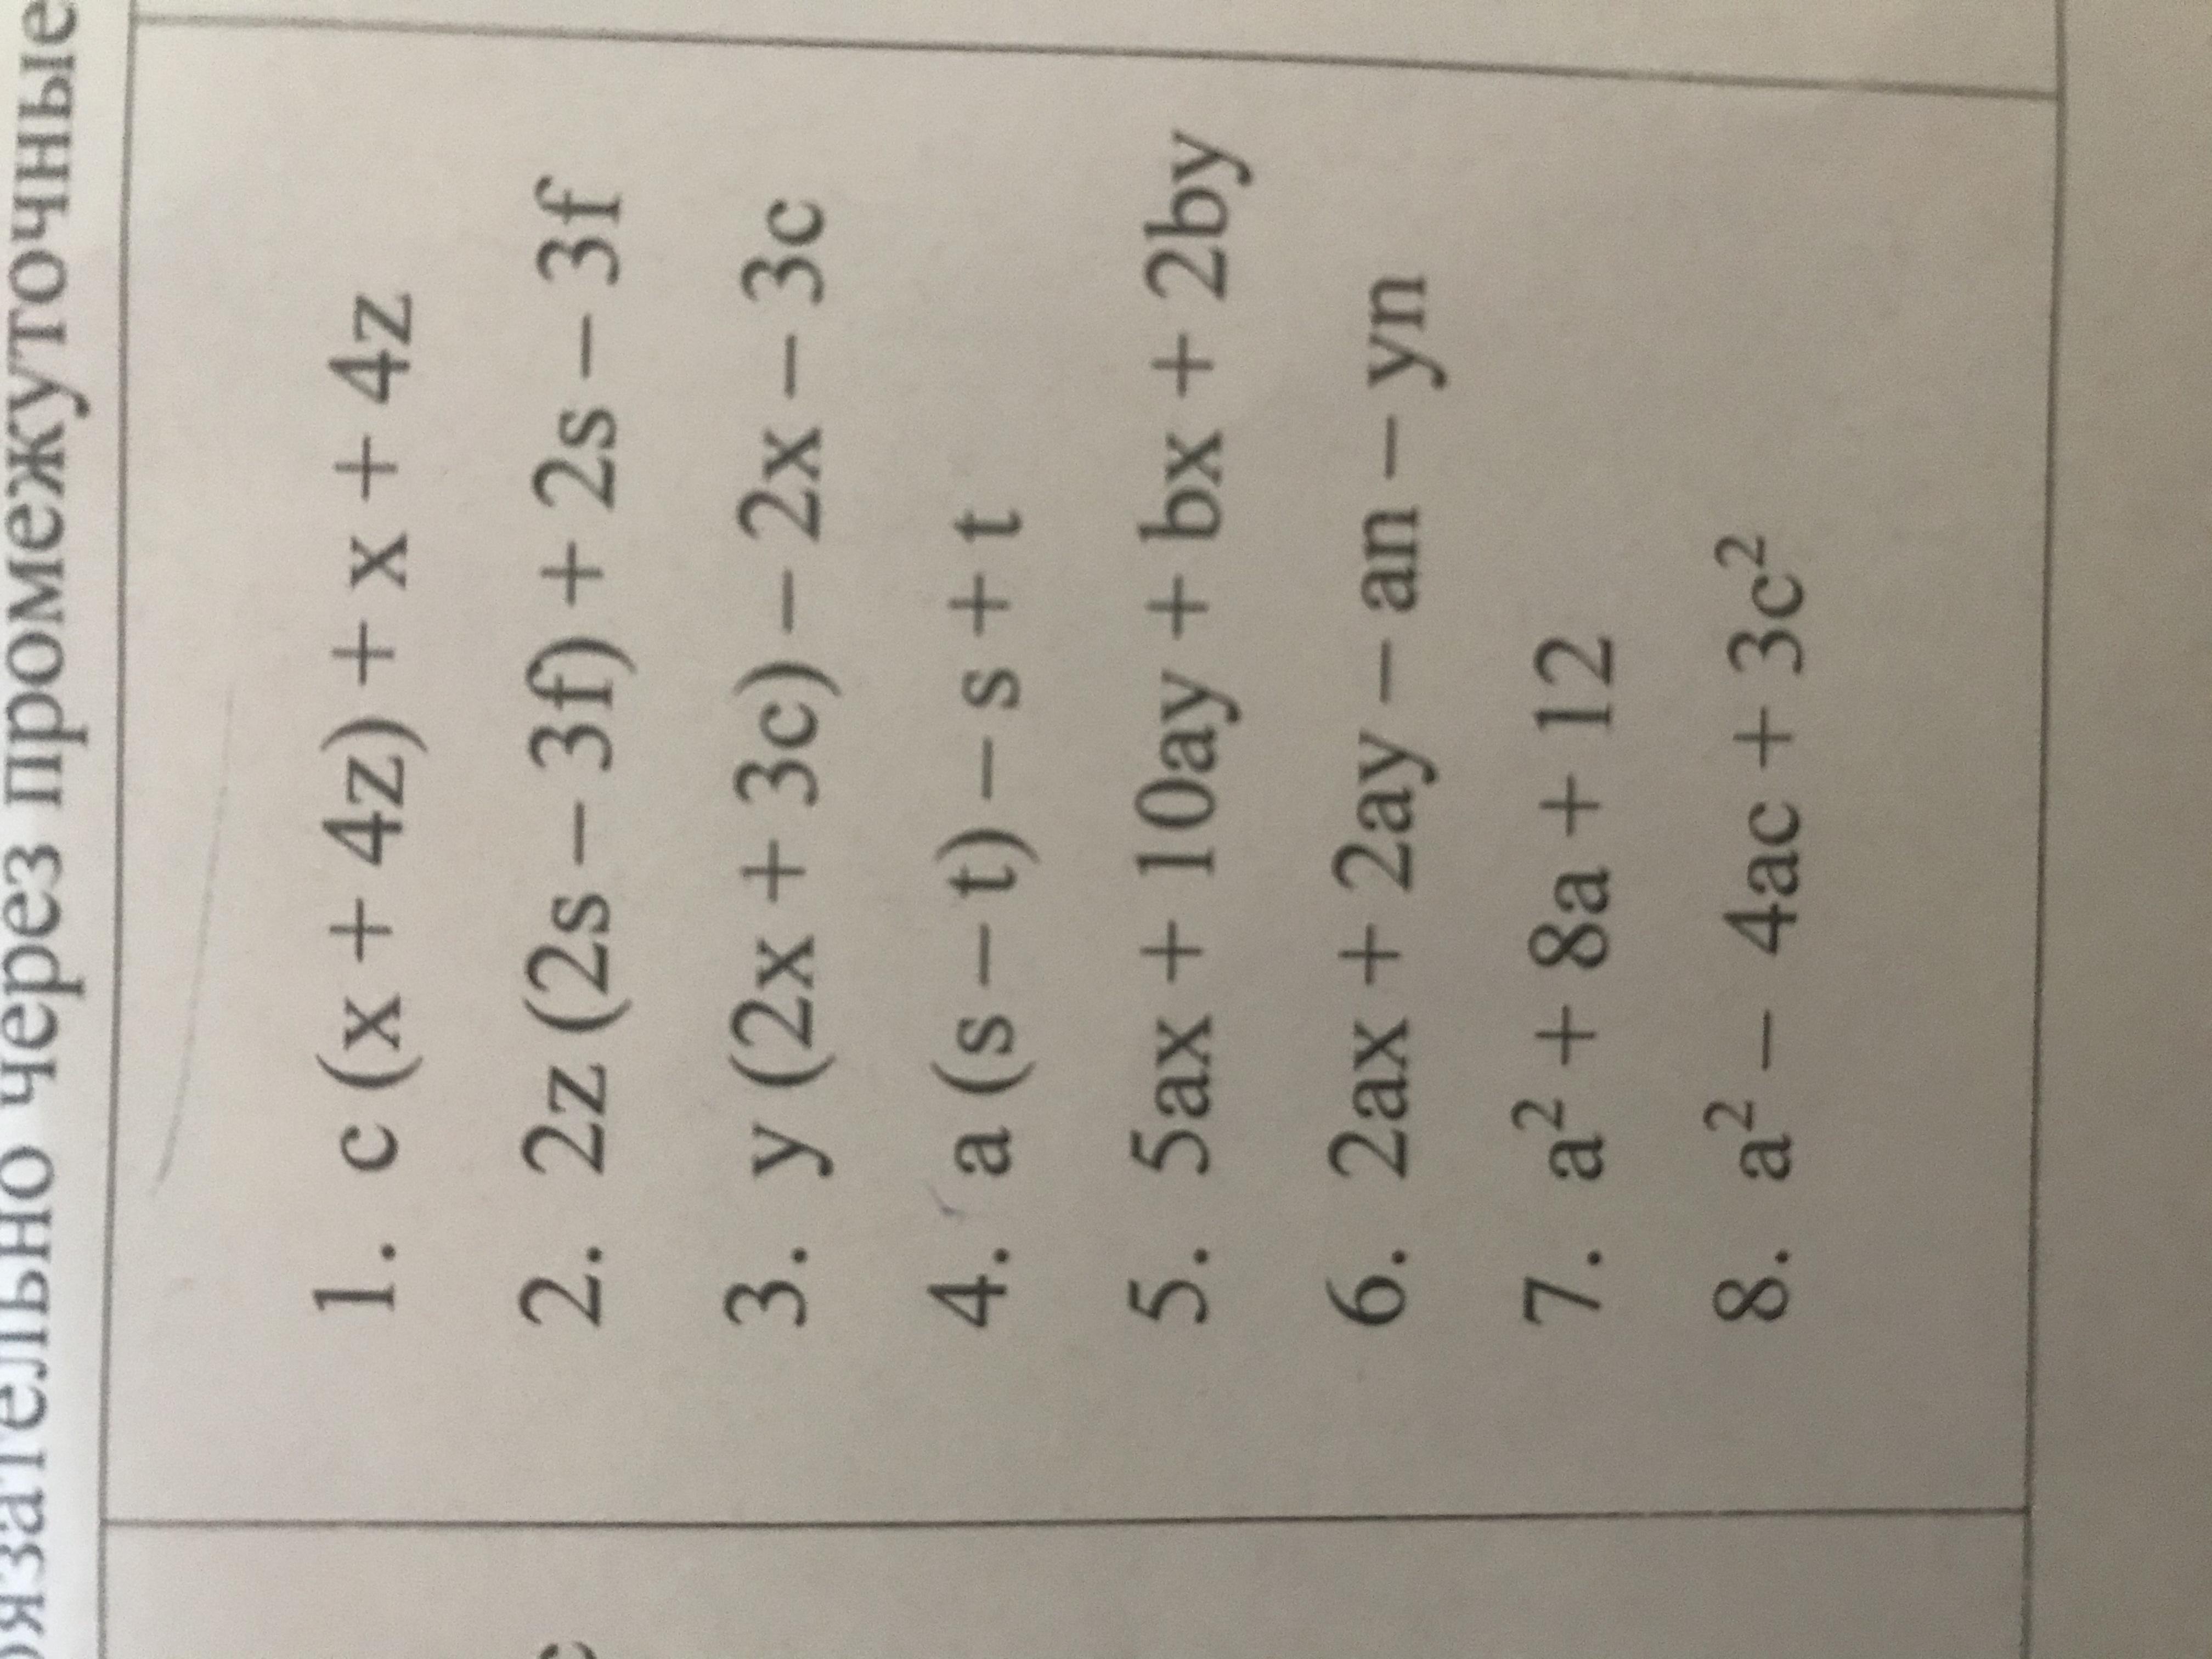 через промежуточные
1. c (x + 4z) + x + 4z
2. 2z (2s – 3f) + 2s – 3f
3. y (2x + 3c) – 2x – 3c
4. a (s – t) – s + t
5. 5ax + 10ay + bx + 2by
6. 2ax + 2ay – an – yn
7. a² + 8a + 12
8. a² – 4ac + 3c²